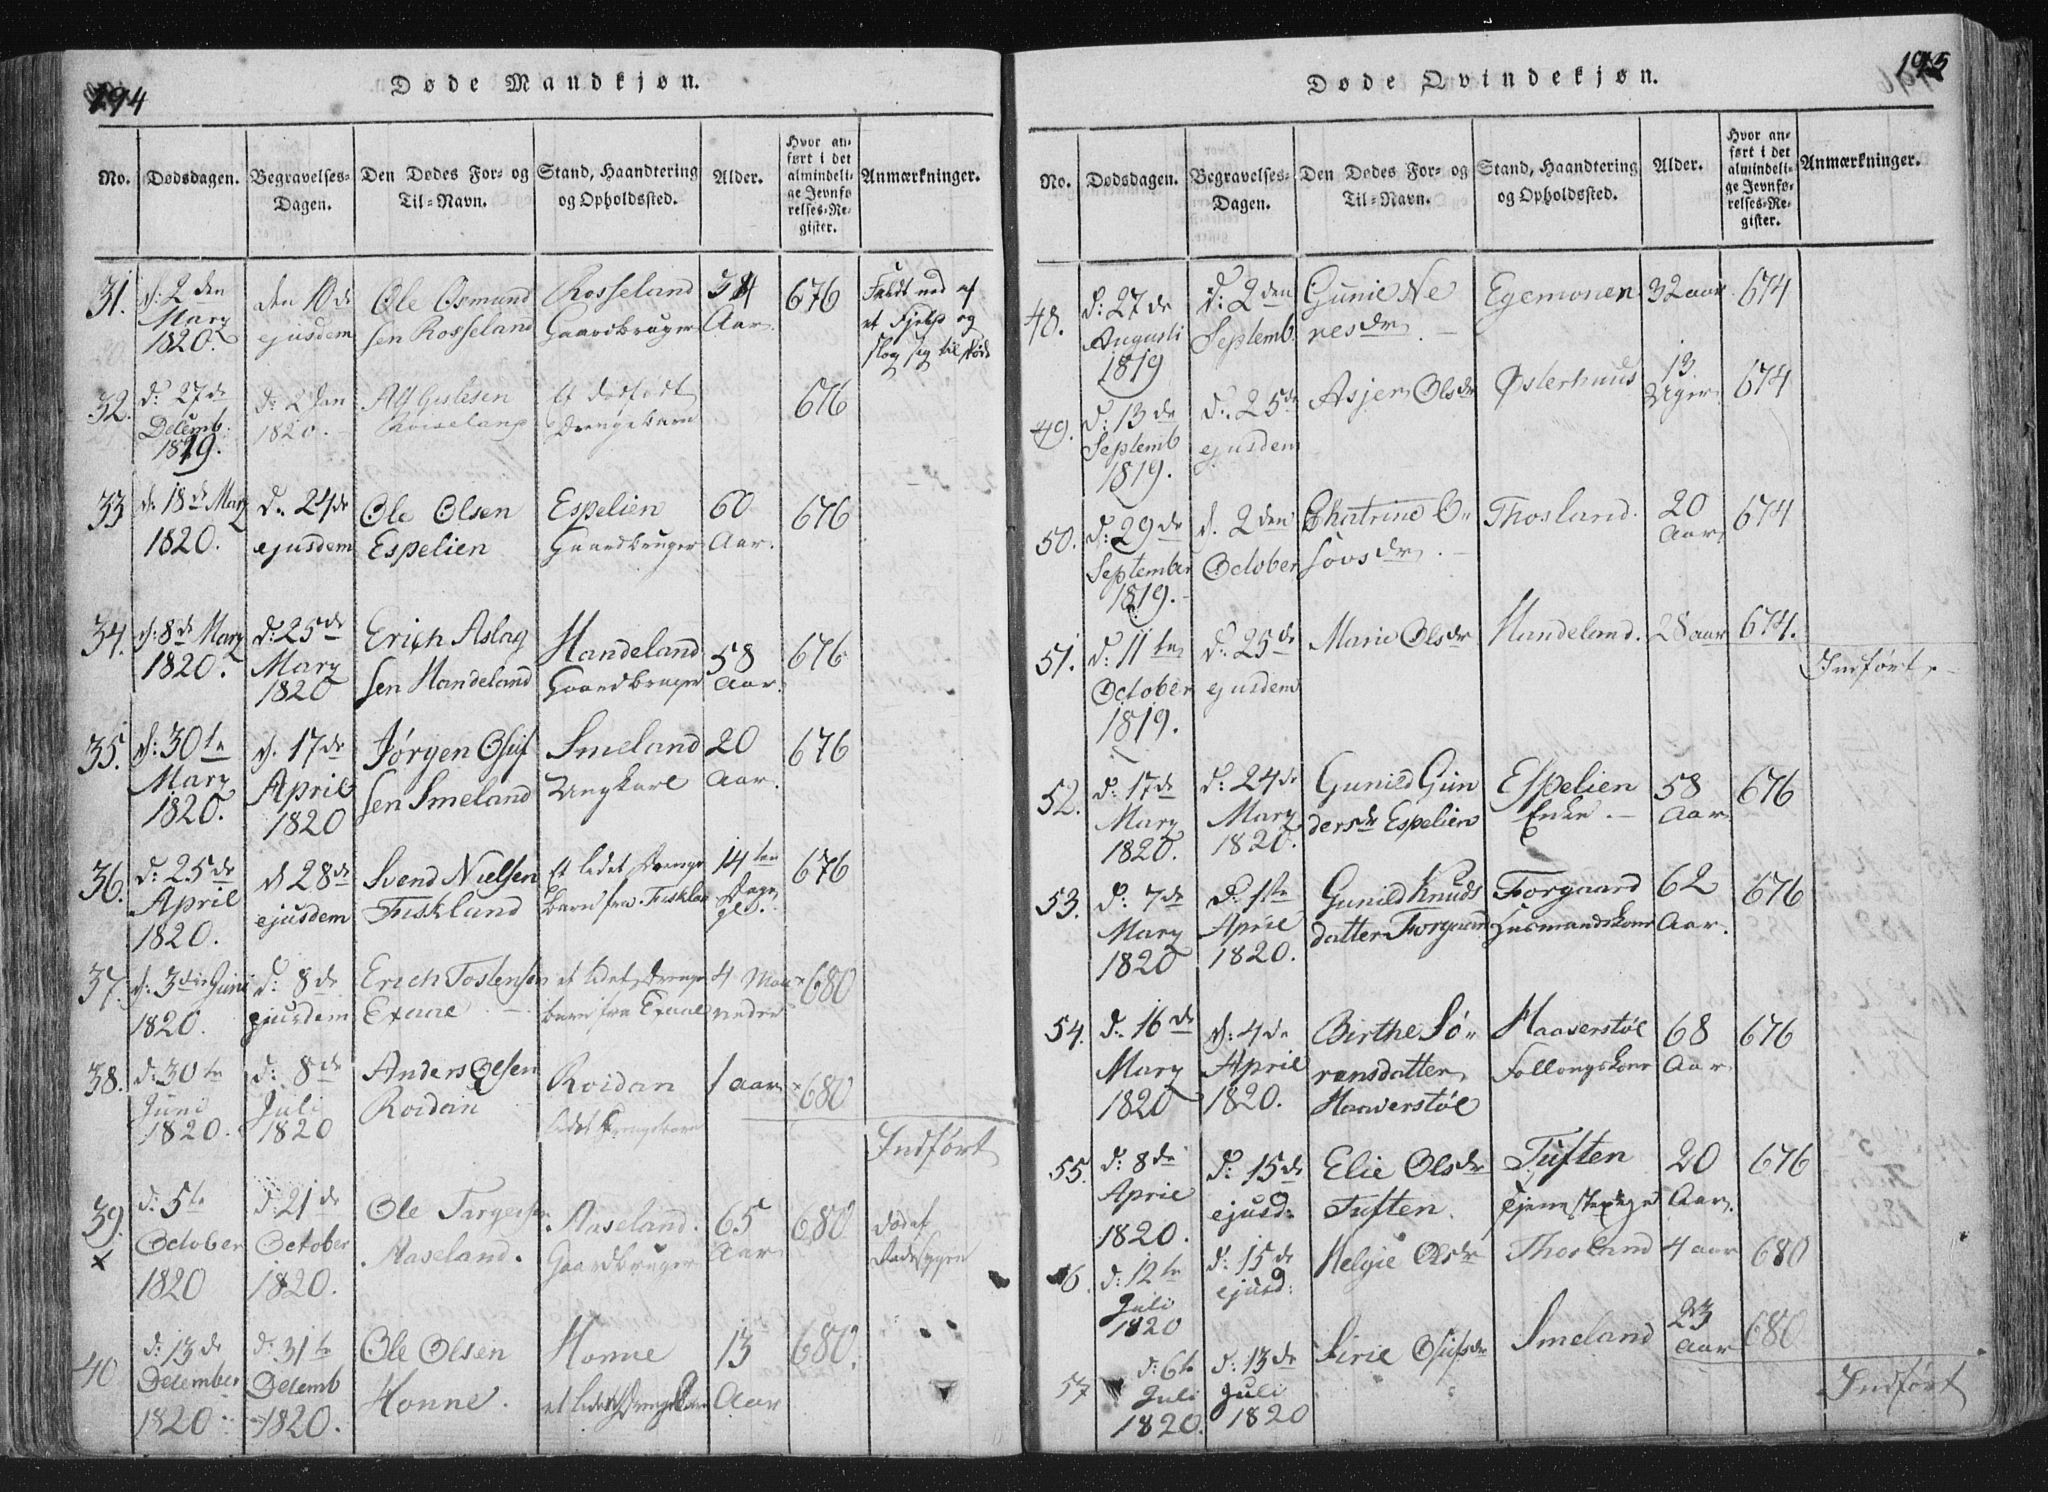 194
Døde Mandkjøn.
No. Dødsdagen. Begravelses-Dagen. Den Dødes For- og Til-Navn. Stand, Haandtering og Opholdssted. Alder. Hvor anført i det almindelige Jevnførelses-Register. Anmærkninger.
31. d: 2den den 10de Ole Osmund Rosseland 34 676 Faldt ned af
Marz ejusdem sen Rosseland Gaardbruger Aar. et Fjeld og
1820. slog sig til døde
32. d: 27de d: 2 Jan Et dødfødt 676
Decemb. 1820. Drengebarn
1819.
33 d: 18de Marz D. 24de Ole Olsen Espelien 60 676
1820. ejusdem Espelien Gaardbruger Aar.
34. d: 8de Marz d: 25de Erich Aslag Handeland 58 676
1820. Marz sen Handeland Gaardbruger Aar.
1820
35. d: 30te d. 17de Jørgen Osuf Smeland 20 676
Marz April sen Smeland Ungkarl Aar.
1820. 1820
36. d: 25de d 28de Svend Nielsen Et lidet Drenge 14ten 676
April ejusdem Fiskland barn fra Fisklan Dage
1820. gl.
37. d: 3die Juni d: 8de Erich Tostensen et lidet Drenge 4 Maa 680
1820. ejusdem Exaae barn fra Exaae neder
38. d: 30te d: 8de Anders Olsen Roidan 1 aar 680
Juni Juli Roidan lidet Drengebarn
1820. 1820
Indført
39. d: 5te d: 21de Ole Targersen Aaseland. 65 680 død af
x October October Aaseland. Gaardbruger Aar Radesygen
1820 1820.
40 d: 13de d: 31te Ole Olsen Honne 13 680.
December Decemb Honne. et lidet Drengebarn Aar
1820 1820.
195
Døde Qvindekjøn.
No. Dødsdagen. Begravelses-Dagen. Den Dødes For- og Til-Navn. Stand, Haandtering og Opholdssted. Alder. Hvor anført i det almindelige Jevnførelses-Register. Anmærkninger.
48. d: 27de d: 2den Gunie Ne Egemonen 32 aar 674
Augusti Septemb. resdr
1819
49. d: 13de d: 25de Asjer Olsdr Østerhuus 13 674
Septemb ejusdem Uger
1819.
50. d: 29de d. 2den Chatrine O= Thosland. 20 674
September October sovsdr. Aar
1819.
51. d: 11te d: 25de Marie Olsdr Handeland. 28 aar 674.
October ejusdem Indført.
1819.
52. d: 17de d: 24de Gunild Gun Espelien 58 676
Marz Marz dersdr Espelien Enke. Aar
1820. 1820.
53. d: 7de d: 1ste Gunild Knuds Forgaard 62 676
Marz April datter Forgaard Husmandskone Aar.
1820 1820.
54. d. 16de d: 4de Birthe Sø= Haaverstøl 68 676
Marz April rensdatter Follougskone Aar.
1820 1820. Haaverstøl
55. d: 8de d: 15de Elie Olsdr Tuften 20 676
April ejusd: Tuften. Tjenestepige Aar.
1820.
56. d: 12te d: 15de Helgie Olsdr Thosland 4 aar 680
Juli ejusd:
1820
57 d: 6te d: 13de Sirie Osufsdr Smeland 23 680
Juli Juli Aar
1820. 1820 Indført